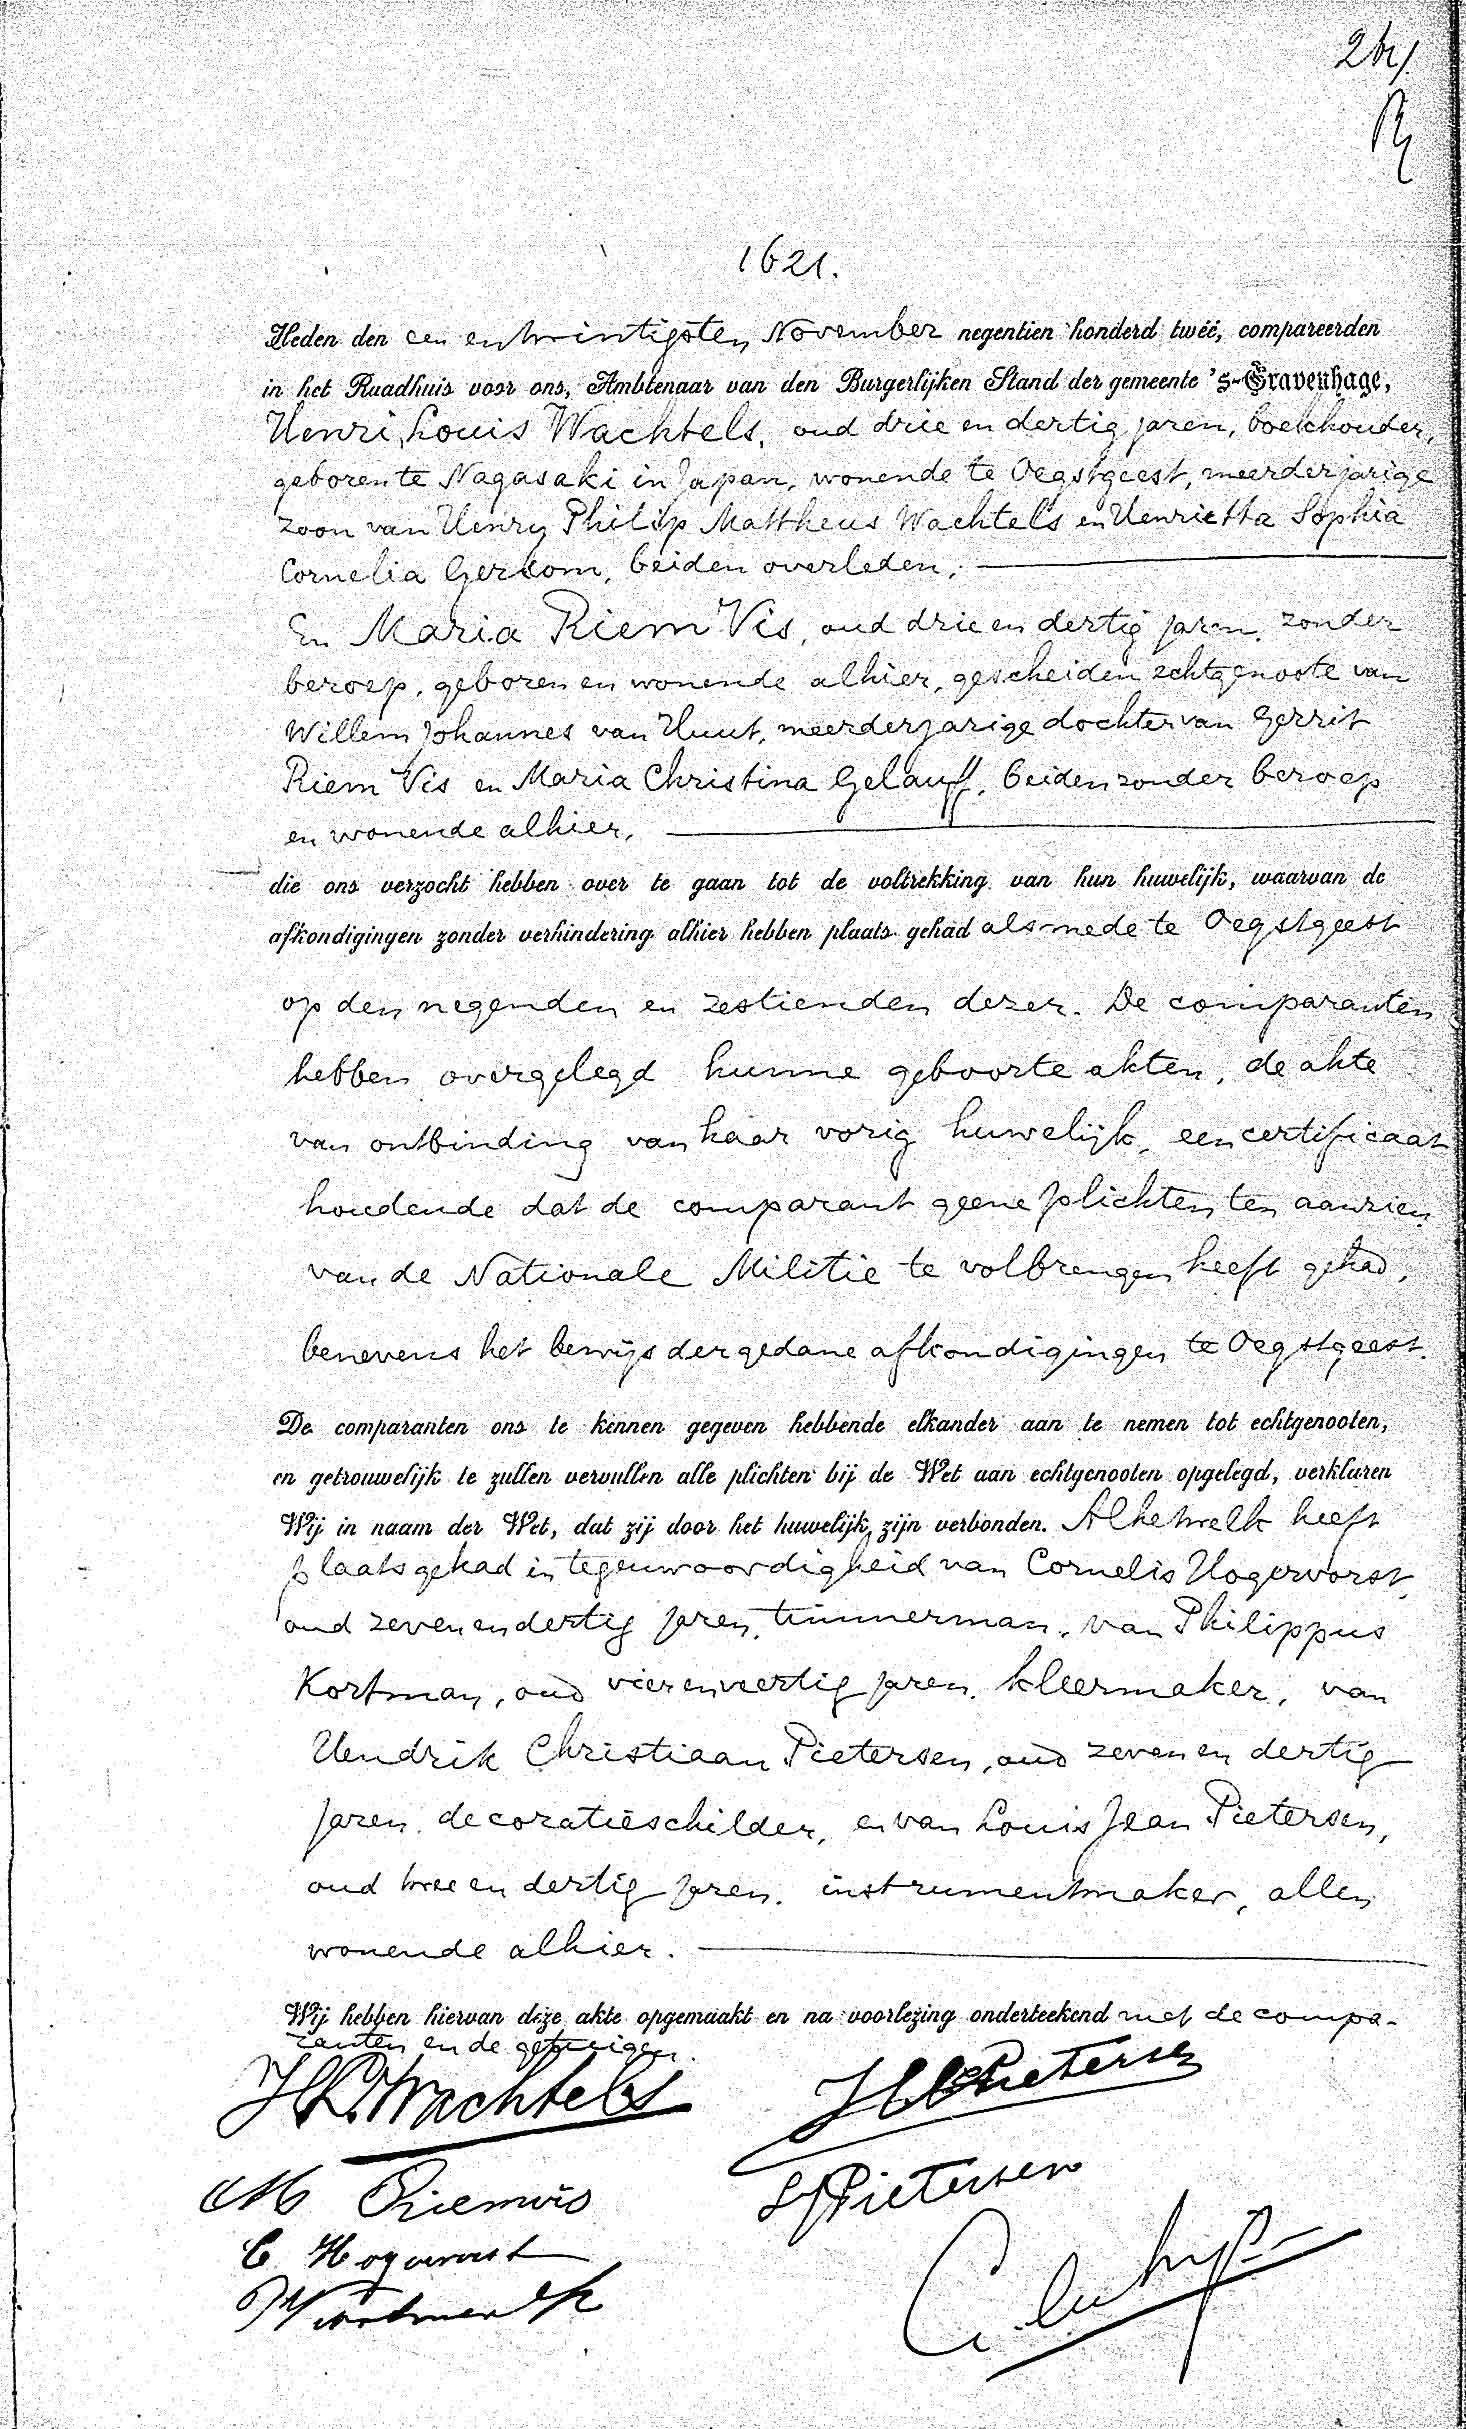 1621.
Heden den een entwintigsten November negentien honderd twéé, compareerden
in het Raadhuis voor ons, Ambtenaar van den Burgerlijken Stand der gemeente 's-Gravenhage,
Henri Louis Wachtels, oud drie en dertig jaren, boekhouder,
geboren te Nagasaki in Japan, wonende te Oegstgeest, meerderjarige
zoon van Henry Philip Mattheus Wachtels en Henrietta Sophia
Cornelia Gerkom, beiden overleden,
En Maria Riem Vis, oud drie en dertig jaren, zonder
beroep, geboren en wonende alhier, gescheiden echtgenoote van
Willem Johannes van Huut, meerderjarige dochter van Gerrit
Riem Vis en Maria Christina Gelauff, beiden zonder beroep
en wonende alhier,
die ons verzocht hebben over te gaan tot de voltrekking van hun huwelijk, waarvan de
afkondigingen zonder verhindering alhier hebben plaats gehad alsmede te Oegstgeest
op den negenden en zestienden dezer. De comparanten
hebben overgelegd hunne geboorte akten, de akte
van ontbinding van haar vorig huwelijk, een certificaat
houdende dat de comparant geene plichten ten aanzien
van de Nationale Militie te volbrengen heeft gehad,
benevens het bewijs der gedane afkondigingen te Oegstgeest.
De comparanten ons te kennen gegeven hebbende elkander aan te nemen tot echtgenooten,
en getrouwelijk te zullen vervullen alle plichten bij de Wet aan echtgenooten opgelegd, verklaren
Wij in naam der Wet, dat zij door het huwelijk zijn verbonden. Al hetwelk heeft
plaats gehad in tegenwoordigheid van Cornelis Hogervorst,
oud zeven en dertig jaren, timmerman, van Philippus
Kortman, oud vier en veertig jaren, kleermaker, van
Hendrik Christiaan Pietersen, oud zeven en dertig
jaren, decoratieschilder, en van Louis Jean Pietersen,
oud twee en dertig jaren, instrumentmaker, allen
wonende alhier.
Wij hebben hiervan deze akte opgemaakt en na voorlezing onderteekend met de compa-
ranten en de getuigen.
H L Wachtels
H C Pietersen
M Riemvis
L J Pietersen
C Hogervorst